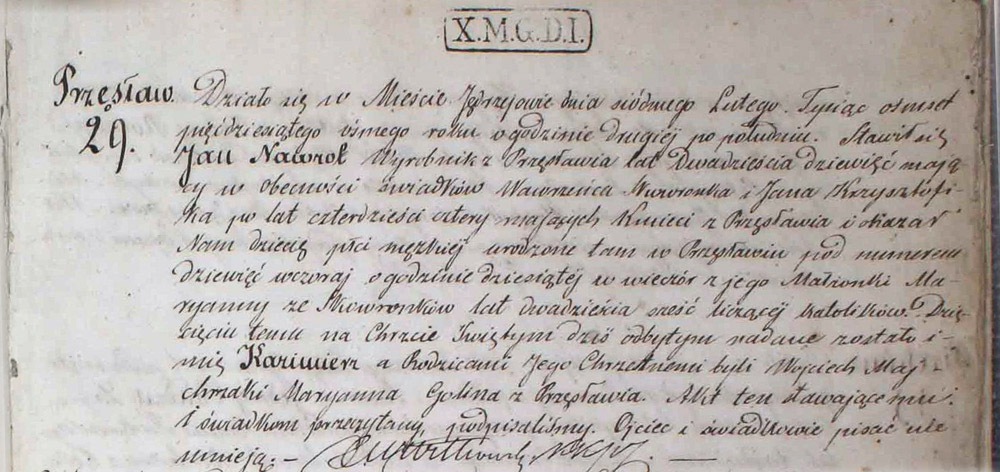 X.M.G.D.I.
Przęsław. Działo się w Mieście Jędrzejowie dnia siódmego Lutego. Tysiąc ośmset
29. pięćdziesiątego ósmego roku o godzinie drugiéj po południu. Stawił się
Jan Nawrot Wyrobnik z Przęsławia lat Dwadzieścia dziewięć mają-
cy w obecności świadków Wawrzeńca Skowronka i Jana Krzysztofi-
ka po lat czterdzieści cztery mających Kmieci z Przęsławia i okazał
Nam dziecię płci męzkiéj urodzone tam w Przęsławiu pod numerem
dziewięć wczoraj o godzinie dziesiątéj w wieczór z jego Małżonki Ma-
ryanny ze Skowronków lat dwadzieścia sześć liczącéj katolików. Dzie-
cięciu temu na Chrzcie Świętym dziś odbytym nadane zostało i-
mię Kazimierz a Rodzicami Jego Chrzestnemi byli Wojciech Maj-
chrzak i Maryanna Golina z Przęsławia. Akt ten stawającemu
i świadkom przeczytany, podpisaliśmy. Ojciec i świadkowie pisać nie
umieją. –